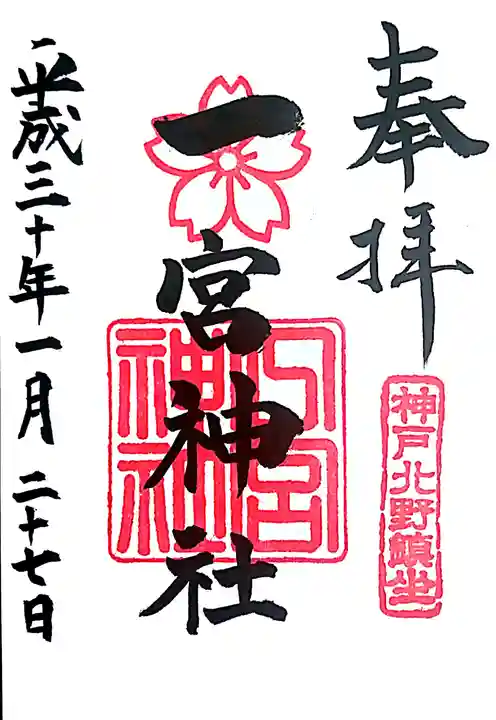 奉拝
神戸北野鎮坐
一宮神社
平成三十年一月二十七日